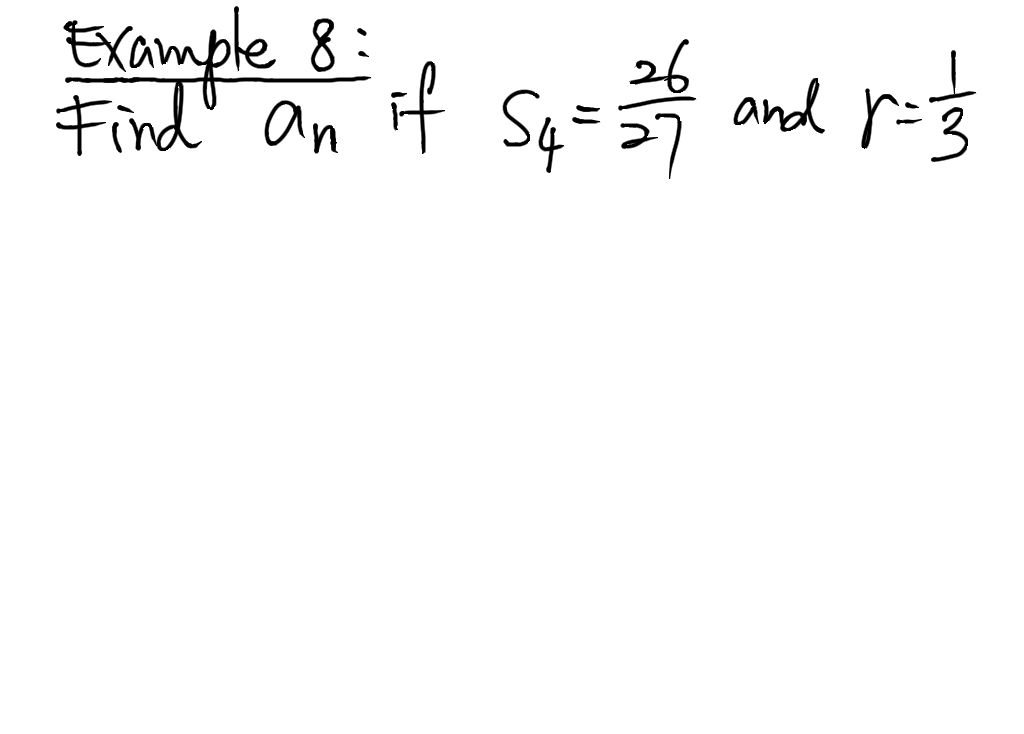 Example 8:
Find aₙ if S₄ = 26/27 and r = 1/3